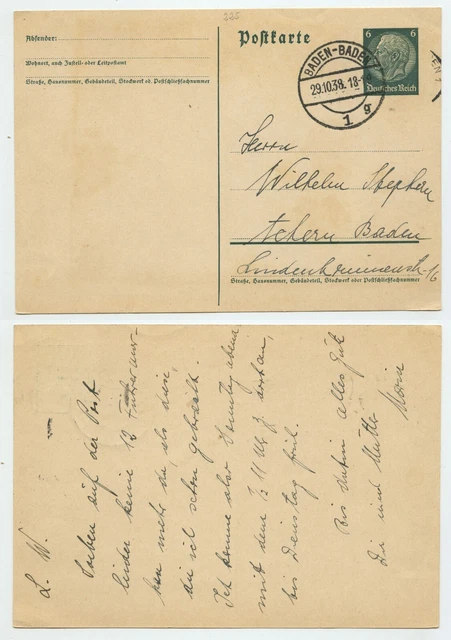 225
Absender:
Postkarte
Wohnort, auch Zustell- oder Leitpostamt
Straße, Hausnummer, Gebäudeteil, Stockwerk od. Postschließfachnummer
6 6
Deutsches Reich
BADEN-BADEN
29.10.38. 18-
1 g
Herrn
Wilhelm Stephan
Achern Baden
Lindenbrunnenstr. 16
Straße, Hausnummer, Gebäudeteil, Stockwerk oder Postschließfachnummer
L. W.
Soeben auf der Post
leider keine 12
mehr da, als diese,
die ich schon gebracht.
Ich komme also Sonntag abend
mit dem ½ 11 Uhr Z. dort an,
bis Dienstag früh.
Bis dahin alles Gute
Dir und Mutter